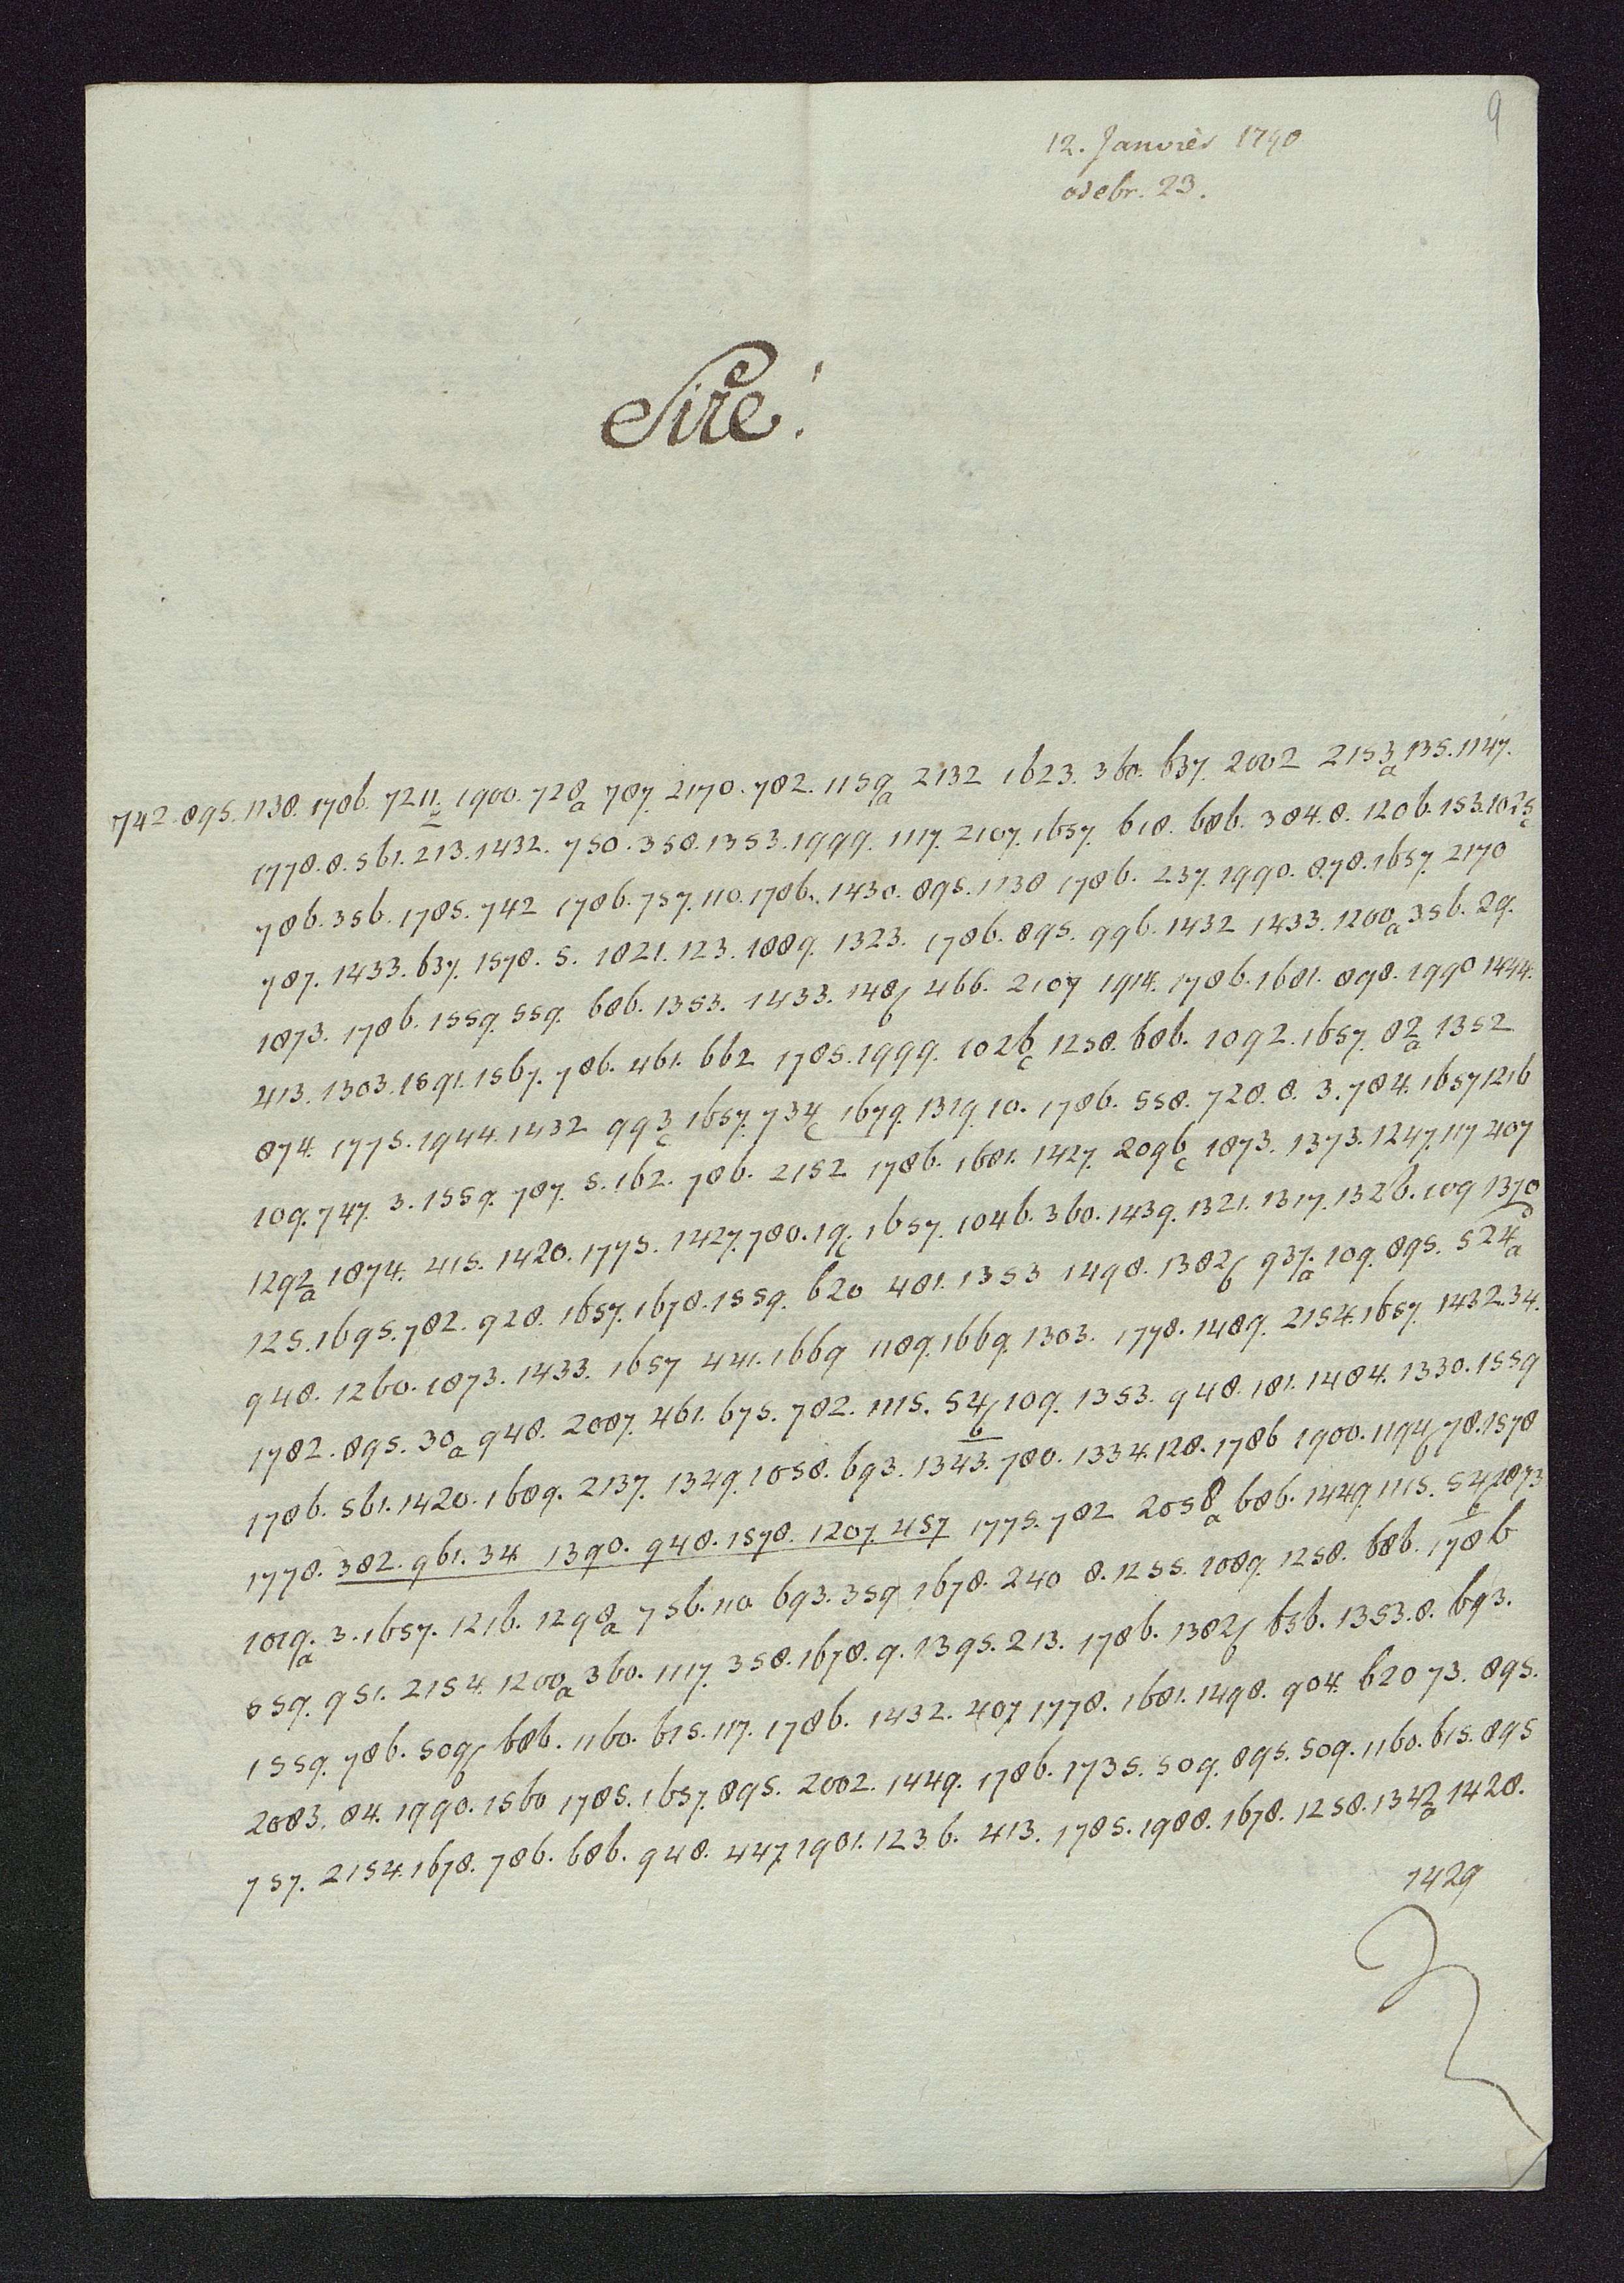 9
12. Janvièr 1790
odebr. 23.
Sire!
742. 895. 1138. 1786. 7211. 1900. 728a 787. 2170. 782. 1159a 2132 1623. 360. 637. 2002 2153a 135. 1147.
1778. 8. 561. 213. 1432. 750. 358. 1353. 1999. 1117. 2107. 1657. 618. 686. 384. 8. 1206. 153. 1025c
786. 356. 1785. 742 1786. 757. 110. 1786. 1430. 895. 1138 1786. 237. 1990. 878. 1657. 2170
787. 1433. 637. 1578. 5. 1821. 123. 1889. 1323. 1786. 895. 996. 1432 1433. 1200a 356. 29.
1873. 1786. 1559. 559. 686. 1353. 1433. 148b 466. 2107 1914. 1786. 1681. 898. 1990 1444.
413. 1303. 1591. 1567. 786. 461. 662 1785. 1999. 1026c 1258. 686. 1092. 1657. 82a 1352
874. 1775. 1944. 1432 993c 1657. 734c 1679. 1319. 10. 1786. 558. 728. 8. 3. 784. 1657 1216
109. 747. 3. 1559. 787. 5. 162. 786. 2152 1786. 1681. 1427. 2096c 1873. 1373. 1247. 117 407
1292a 1874. 415. 1420. 1775. 1427. 780. 19c 1657. 1046. 360. 1439. 1321. 1317. 1326. 109 1370
125. 1695. 782. 928. 1657. 1678. 1559. 620 481. 1353 1498. 1382b 937a 109. 895. 524a
948. 1260. 1873. 1433. 1657 441. 1669 1189. 1669. 1303. 1778. 1489. 2154. 1657. 1432. 34.
1782. 895. 30a 948. 2087. 461. 675. 782. 1115. 54b 109. 1353. 948. 181. 1484. 1330. 1559
1786. 561. 1420. 1689. 2137. 1349. 1058. 693. 1343. 780. 1334. 128. 1786 1900. 1194b 78. 1578
1778. 382. 961. 34 1390. 948. 1578. 1207. 457 1775. 782 2058a 686. 1449. 1115. 54b 1873
1019a 3. 1657. 1216. 1298a 756. 110 693. 359 1678. 240 8. 1255. 1089. 1258. 686. 1786
559. 951. 2154. 1200a 360. 1117. 358. 1678. 9. 1395. 213. 1786. 1382b 656. 1353. 8. 693.
1559. 786. 509b 686. 1160. 615. 117. 1786. 1432. 407 1778. 1681. 1498. 904. 620 73. 895.
2083. 84. 1990. 1560 1785. 1657. 895. 2002. 1449. 1786. 1735. 509. 895. 509. 1160. 615. 895
757. 2154. 1678. 786. 686. 948. 447. 1901. 1236. 413. 1785. 1988. 1678. 1258. 1342a 1428.
1429